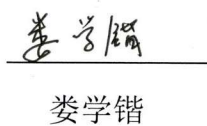 娄学锴
娄学锴